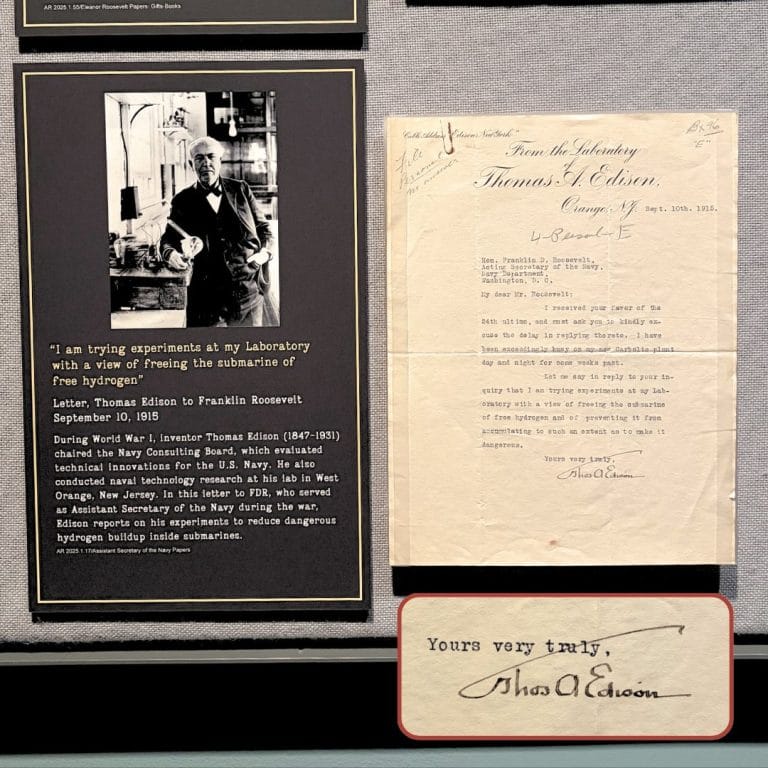 AR 2025.1.55/Eleanor Roosevelt Papers: Gifts-Books
"I am trying experiments at my Laboratory
with a view of freeing the submarine of
free hydrogen"
Letter, Thomas Edison to Franklin Roosevelt
September 10, 1915
During World War I, inventor Thomas Edison (1847-1931)
chaired the Navy Consulting Board, which evaluated
technical innovations for the U.S. Navy. He also
conducted naval technology research at his lab in West
Orange, New Jersey. In this letter to FDR, who served
as Assistant Secretary of the Navy during the war,
Edison reports on his experiments to reduce dangerous
hydrogen buildup inside submarines.
AR 2025.1.17/Assistant Secretary of the Navy Papers
"Cable Address Edison, New York"
From the Laboratory
of
Thomas A. Edison,
Orange, N.J. Sept. 10th. 1915.
File
Personal
no answer
"E"
Hon. Franklin D. Roosevelt,
Acting Secretary of the Navy,
Navy Department,
Washington, D. C.
My dear Mr. Roosevelt:
I received your favor of the
24th ultimo, and must ask you to kindly ex-
cuse the delay in replying thereto. I have
been exceedingly busy on my new Carbolic plant
day and night for some weeks past.
Let me say in reply to your in-
quiry that I am trying experiments at my Lab-
oratory with a view of freeing the submarine
of free hydrogen and of preventing it from
accumulating to such an extent as to make it
dangerous.
Yours very truly,
Thos A Edison
Yours very truly,
Thos A Edison